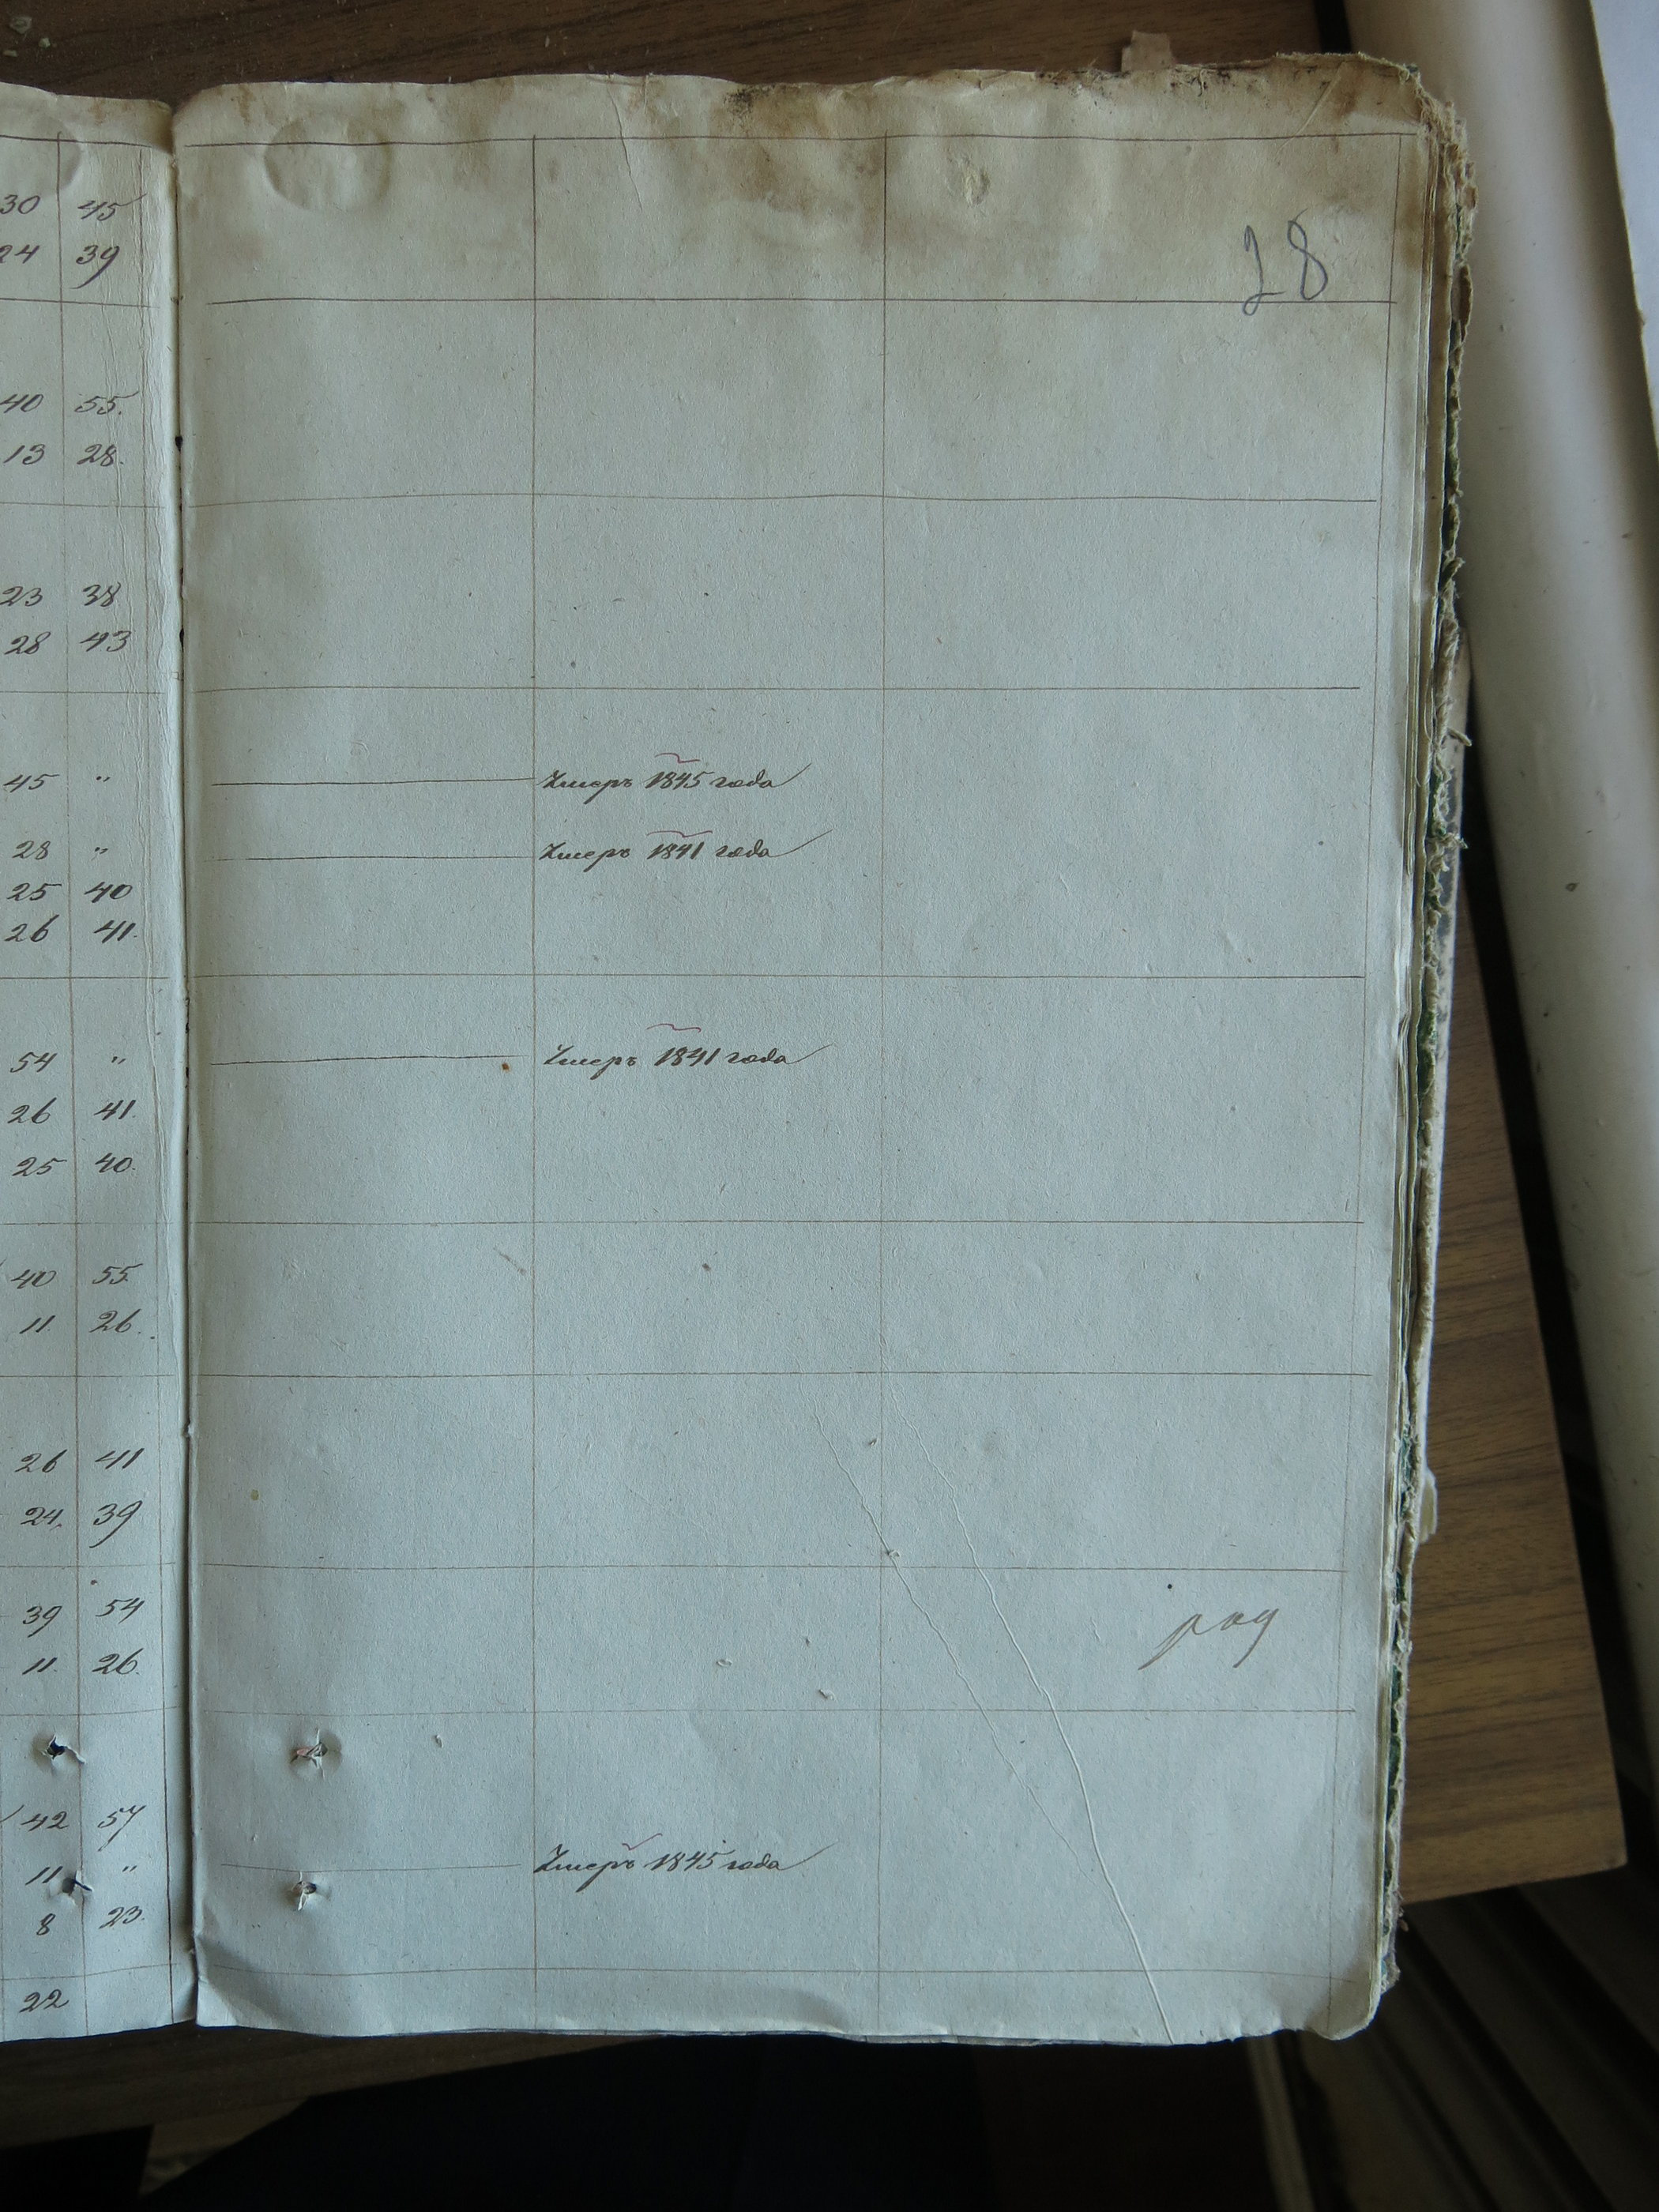 30 45
24 39
28
40 55.
13 28.
23 38
28 43
45 " Умеръ 1845 года
28 " Умеръ 1841 года
25 40
26 41.
54 " Умеръ 1841 года
26 41.
25 40.
40 55.
11. 26.
26 41
24. 39
39 54
11. 26.
42 57
11 " Умеръ 1845 года
8 23.
22